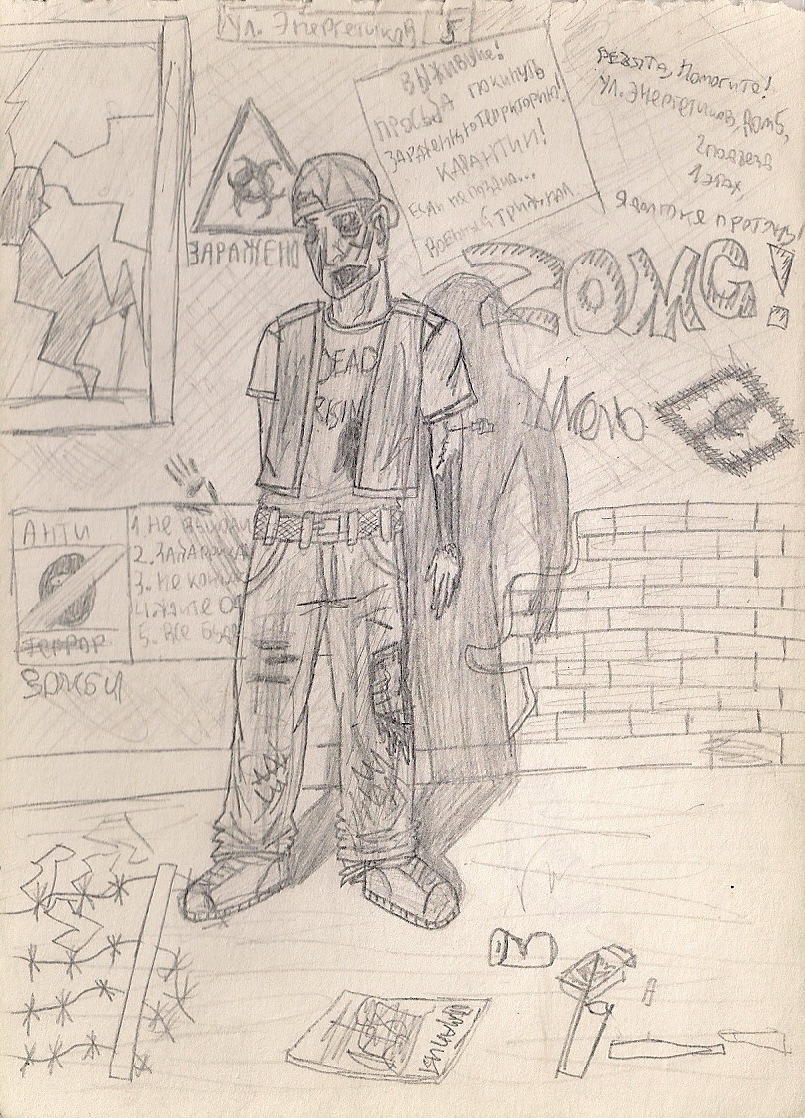 Ул. Энергетиков 5
ВЫЖИВШИЕ!
ПРОСЬБА ПОКИНУТЬ
ЗАРАЖЕННУЮ ТЕРРИТОРИЮ!
КАРАНТИН!
ЕСЛИ НЕ ПОЗДНО...
ВОЕННЫЙ ТРИБУНАЛ
РЕБЯТА, Помогите!
Ул. Энергетиков, Дом 5,
2 подъезд
1 этаж,
Я долго не протяну!
ЗАРАЖЕНО
ZOMG!
DEAD
RISIN
Ноль
АНТИ
ТЕРРОР
ЗОМБИ
1. Не выходи
2.
3. Не
4. ждите
5. Все